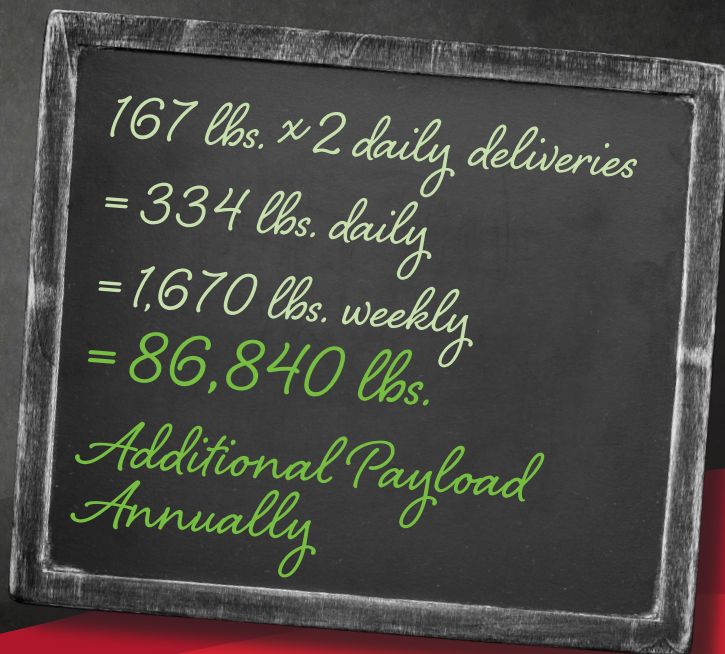 167 lbs. x 2 daily deliveries
= 334 lbs. daily
= 1,670 lbs. weekly
= 86,840 lbs.
Additional Payload
Annually